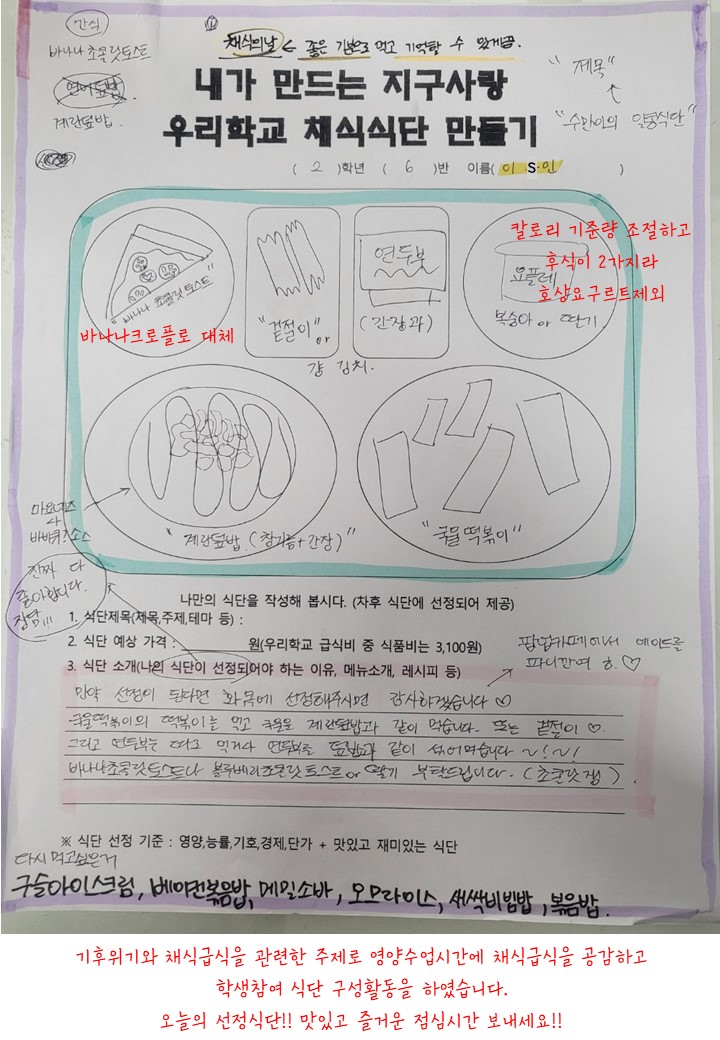 간식
바나나 초콜릿토스트
연어덮밥.
계란덮밥.
①
채식의날 ← 좋은 기분으로 먹고 기억할 수 있게끔.
내가 만드는 지구사랑
우리학교 채식식단 만들기
"제목"
"수민이의 일통식단"
( 2 )학년 ( 6 )반 이름( 이 S·민 )
바나나 초콜릿토스트"
바나나크로플로 대체
"겉절이" or
걍 김치.
연두부
(간장과)
칼로리 기준량 조절하고
후식이 2가지라
호상요구르트제외
요플레
복숭아 or 딸기.
마요네즈
바비큐소스
"계란덮밥. (참기름+간장)"
"국물떡볶이"
진짜 다
좋아합니다.
장담!!!
나만의 식단을 작성해 봅시다. (차후 식단에 선정되어 제공)
1. 식단제목(제목,주제,테마 등) :
2. 식단 예상 가격 : 원(우리학교 급식비 중 식품비는 3,100원)
3. 식단 소개(나의 식단이 선정되어야 하는 이유, 메뉴소개, 레시피 등)
에이드를
만약 선정이 된다면 화목에 선정해주시면 감사하겠습니다 ♡
국물떡볶이의 떡볶이는 먹고 국물을 계란덮밥과 같이 먹습니다. 또는 겉절이 ♡.
그리고 연두부는 따로 먹거나 연두부를 덮밥과 같이 섞어먹습니다 ~!~!
바나나초콜릿토스트나 블루베리초콜릿토스트 or 딸기 부탁드립니다. (초콜릿잼).
※ 식단 선정 기준 : 영양,능률,기호,경제,단가 + 맛있고 재미있는 식단
다시 먹고싶은거
구슬아이스크림, 베이컨볶음밥, 메밀소바, 오므라이스, 새싹비빔밥, 볶음밥.
기후위기와 채식급식을 관련한 주제로 영양수업시간에 채식급식을 공감하고
학생참여 식단 구성활동을 하였습니다.
오늘의 선정식단!! 맛있고 즐거운 점심시간 보내세요!!